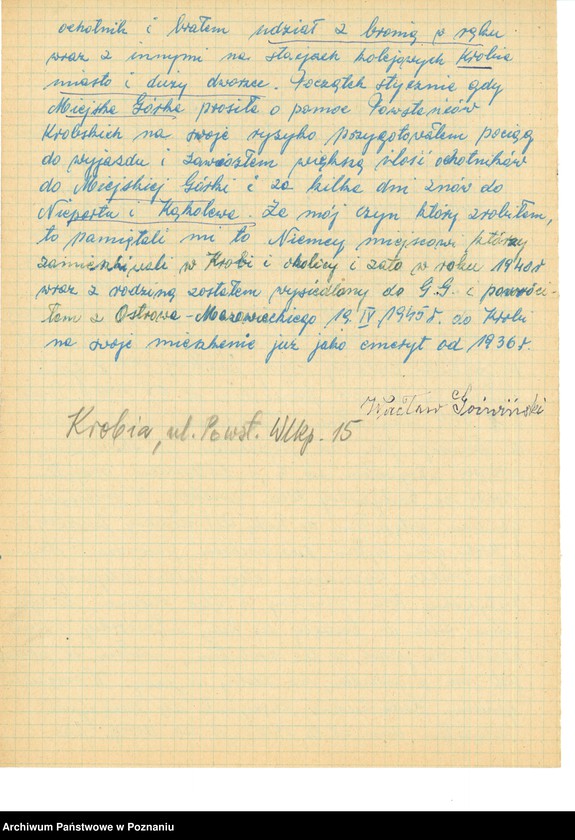 ochotnik i brałem udział z bronią w ręku
wraz z innymi na stacjach kolejowych Krobia
miasto i duży dworzec. Początek stycznia gdy
Miejska Górka prosiła o pomoc Powstańców
Krobskich na swoje ryzyko przygotowałem pociąg
do wyjazdu i zawiozłem większą ilość ochotników
do Miejskiej Górki i za kilka dni znów do
Nieparta i Kąkolewa. Za mój czyn który zrobiłem,
to pamiętali mi to Niemcy miejscowi którzy
zamieszkiwali w Krobi i okolicy i zato w roku 1940r
wraz z rodziną zostałem wysiedlony do G.G. i powróci-
łem z Ostrowa-Mazowieckiego 19 IV 1945r. do Krobi
na swoje mieszkanie już jako emeryt od 1936r.
Wacław
Krobia, ul. Powst. Wlkp. 15
Archiwum Państwowe w Poznaniu